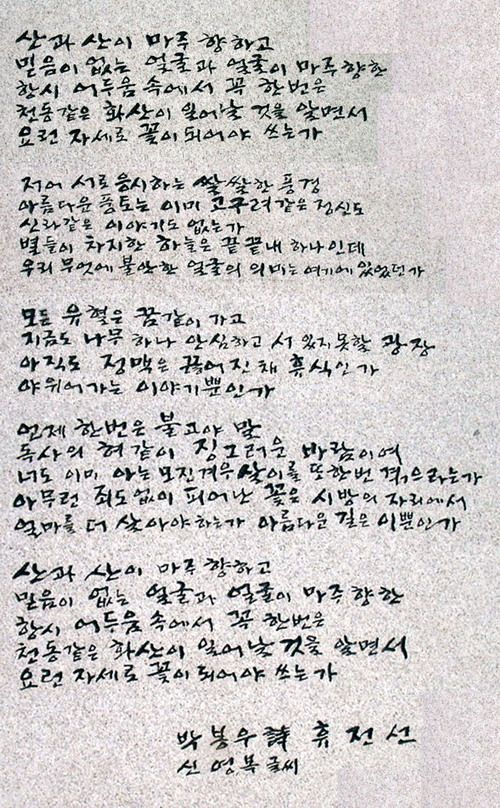 산과 산이 마주 향하고
믿음이 없는 얼굴과 얼굴이 마주 향한
항시 어두움 속에서 꼭 한번은
천동같은 화산이 일어날 것을 알면서
요런 자세로 꽃이 되어야 쓰는가
저어 서로 응시하는 쌀쌀한 풍경
아름다운 풍토는 이미 고구려같은 정신도
신라같은 이야기도 없는가
별들이 차지한 하늘은 끝끝내 하나인데
우리 무엇에 불안한 얼굴의 의미는 여기에 있었던가
모든 유혈은 꿈같이 가고
지금도 나무 하나 안심하고 서 있지 못할 광장
아직도 정맥은 끊어진 채 휴식인가
야위어가는 이야기뿐인가
언제 한번은 불고야 말
독사의 혀같이 징그러운 바람이여
너도 이미 아는 모진 겨우살이를 또 한번 겪으라는가
아무런 죄도 없이 피어난 꽃은 시방의 자리에서
얼마를 더 살아야 하는가 아름다운 길은 이뿐인가
산과 산이 마주 향하고
믿음이 없는 얼굴과 얼굴이 마주 향한
항시 어두움 속에서 꼭 한번은
천동같은 화산이 일어날 것을 알면서
요런 자세로 꽃이 되어야 쓰는가
박봉우 詩 휴전선
신영복 글씨